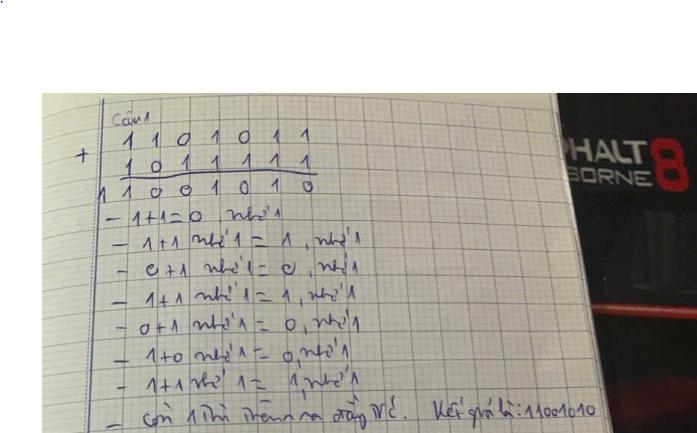 Câu 1
1 1 0 1 0 1 1
+
1 0 1 1 1 1 1
1 1 0 0 1 0 1 0
- 1+1=0, nhớ 1
- 1+1 nhớ 1 = 1, nhớ 1
- 0+1 nhớ 1 = 0, nhớ 1
- 1+1 nhớ 1 = 1, nhớ 1
- 0+1 nhớ 1 = 0, nhớ 1
- 1+0 nhớ 1 = 0, nhớ 1
- 1+1 nhớ 1 = 1, nhớ 1
- còn 1 thì thêm ra đằng Kết quả là: 11001010
PHALT 8
BORNE